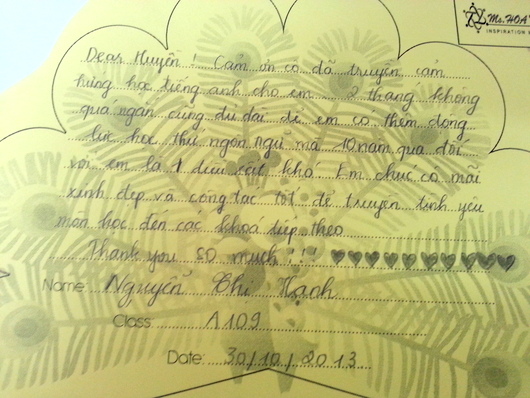 Ms. HOA
INSPIRATION
Dear Huyền ! Cảm ơn cô đã truyền cảm
hứng học tiếng anh cho em. 2 tháng không
quá ngắn cũng đủ dài để em có thêm động
lực học thứ ngôn ngữ mà 10 năm qua đối
với em là 1 điều rất khó. Em chúc cô mãi
xinh đẹp và công tác tốt để truyền tình yêu
môn học đến các khoá tiếp theo
Thank you so much !!! ♥♥♥♥♥♥♥♥♥♥♥
Name: Nguyễn Thị Hạnh
Class: A109
Date: 30/10/2013